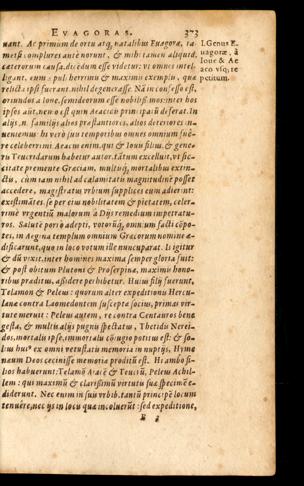 EVAGORAS. 373
uant. Ac primum de ortu atq, natalibus Euagoræ, ta-
metsi complures ante norunt, & mihi tamen aliquid,
cæterorum causa, dicēdum esse videtur: vt omnes intel-
ligant, eum à pulcherrimis & maximis exemplis, quæ
relicta ipsi fuerant, nihil degenerasse. Nā in confesso est,
oriundos a Ioue, semideorum esse nobilissimos: inter hos
ipsos aūt, nemo est qui Æacidis principatū deferat. In
alijs, n. familijs alios præstantiores, alios deteriores in-
ueniemus: hi verò suis temporibus omnes omnium fuê-
re celeberrimi Æacus enim, qui & Iouis filius, & gene-
ris Teucridarum habetur autor, tātum excelluit, vt sic-
citate premente Græciam, multisq́, mortalibus extin-
ctis, cùm iam nihil ad calamitatis magnitudinē posset
accedere, magistratus vrbium supplices eum adierint:
existimātes, se per eius nobilitatem & pietatem, celer-
rimè vrgentiū malorum à Dijs remedium impetratu-
ros. Salute porrò adepti, votorūq́, omnium facti cōpo-
tes, in Ægina templum omnium Græcorum nomine æ-
dificarunt, quo in loco votum ille nuncuparat. Is igitur
& dū vixit, inter homines maxima semper gloria fuit:
& post obitum Plutoni & Proserpinæ, maximis hono-
ribus præditus, assidere perhibetur. Huius filij fuerunt,
Telamon & Peleus: quorum alter expeditionis Hercu-
lanæ contra Laomedontem susceptæ socius, primas vir-
tute meruit: Peleus autem, re contra Centauros bene
gesta, & multis alijs pugnis spectatus, Thetidis Nerei-
dos, mortalis ipse, immortalis cōiugio potitus est: & so-
lius huiꝰ ex omni vetustatis memoria in nuptijs, Hyme
næum Deos cecinisse memoriæ proditū est. Hi ambo fi-
lios habuerunt: Telamō Aiacē & Teucrū, Peleus Achil-
lem: qui maximū & clarissimū virtutis suæ specimē e-
diderunt. Nec enim in suis vrbib. tantū principē locum
tenuêre, nec ijs in locis quæ incoluerūt: sed expeditione,
I. Genus E-
uagoræ, à
Ioue & Æa-
aco vsq; re
petitum.